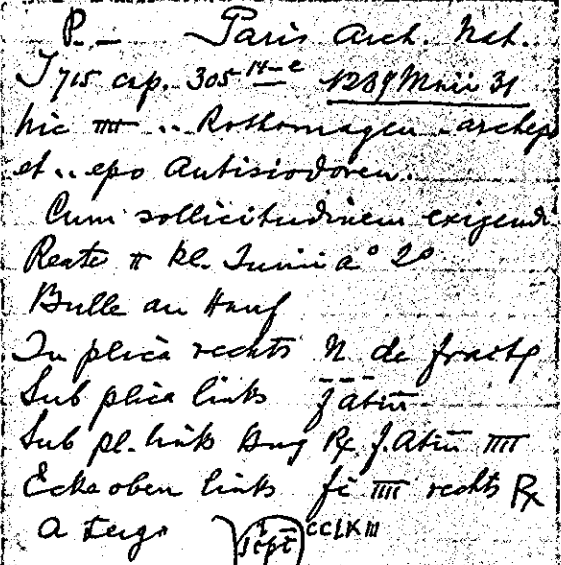 P. — Paris Arch. Nat.
J 715 cap. 305 14 - e 1289 Maii 31
hic IIII .. Rothomagen. archiepo
et .. epo Autisiodoren.
Cum sollicitudinem exigendi
Reate II kl. Junii a° 2°
Bulle an Hanf
In plica rechts N de fractis
Sub plica links
Sub pl. links IIII
Ecke oben links fc IIII rechts Rx
A tergo script CCLXIII